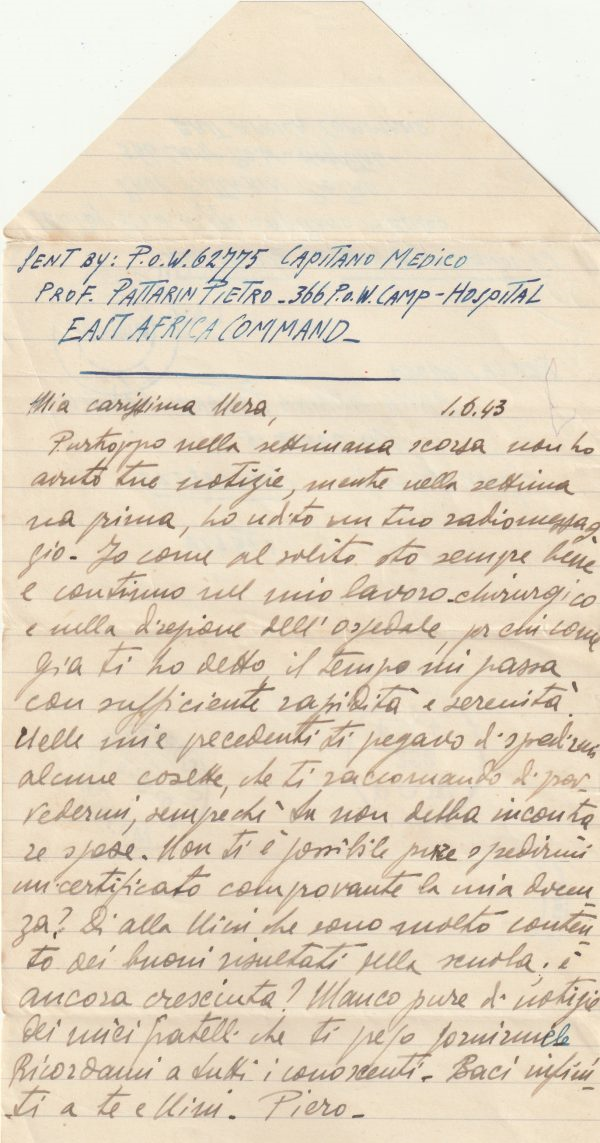 SENT BY: P.O.W. 62775 CAPITANO MEDICO
PROF. PATTARIN PIETRO - 366 P.O.W. CAMP - HOSPITAL
EAST AFRICA COMMAND -
Mia carissima Nera, 1.6.43
Purtroppo nella settimana scorsa non ho
avuto tue notizie, mentre nella settima
na prima, ho udito un tuo radiomessag
gio - Io come al solito sto sempre bene
e continuo nel mio lavoro chirurgico
e nella direzione dell'ospedale, per cui come
già ti ho detto, il tempo mi passa
con sufficiente rapidità e serenità.
Nelle mie precedenti ti pregavo di spedirmi
alcune cosette, che ti raccomando di prov
vedermi, sempechè tu non debba incontra
re spese. Non ti è possibile pure spedirmi
un certificato comprovante la mia docen
za? Di alla Nini che sono molto conten
to dei buoni risultati della scuola; è
ancora cresciuta? Manco pure di notizie
dei miei fratelli che ti prego fornirmele
Ricordami a tutti i conoscenti - Baci infini
ti a te e Nini - Piero -